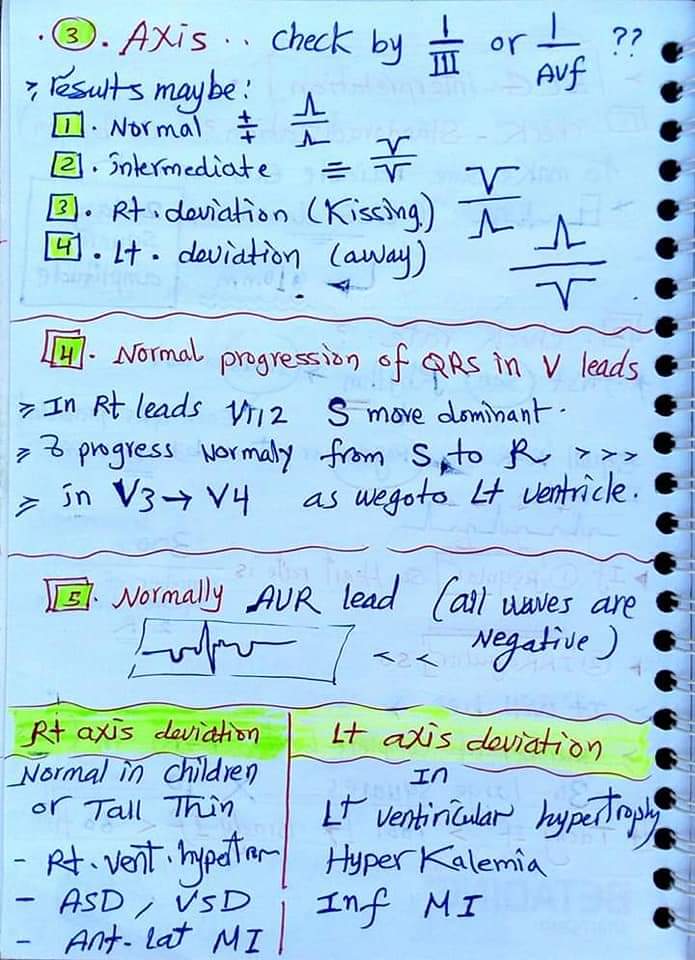 3. Axis.. check by I/III or I/AVf ??
> results maybe:
1. Normal +/+
2. intermediate =
3. Rt. deviation (Kissing)
4. Lt. deviation (away)
4. Normal progression of QRS in V leads
> In Rt leads V1,2 S more dominant.
> progress Normaly from S to R >>>
> in V3 → V4 as we goto Lt ventricle.
5. Normally AUR lead (all waves are
Negative)
<<
Rt axis deviation
Normal in children
or Tall Thin
- Rt. vent. hypertr
- ASD, VSD
- Ant-lat MI
Lt axis deviation
In
Lt ventiricular hypertrophy
HyperKalemia
Inf MI